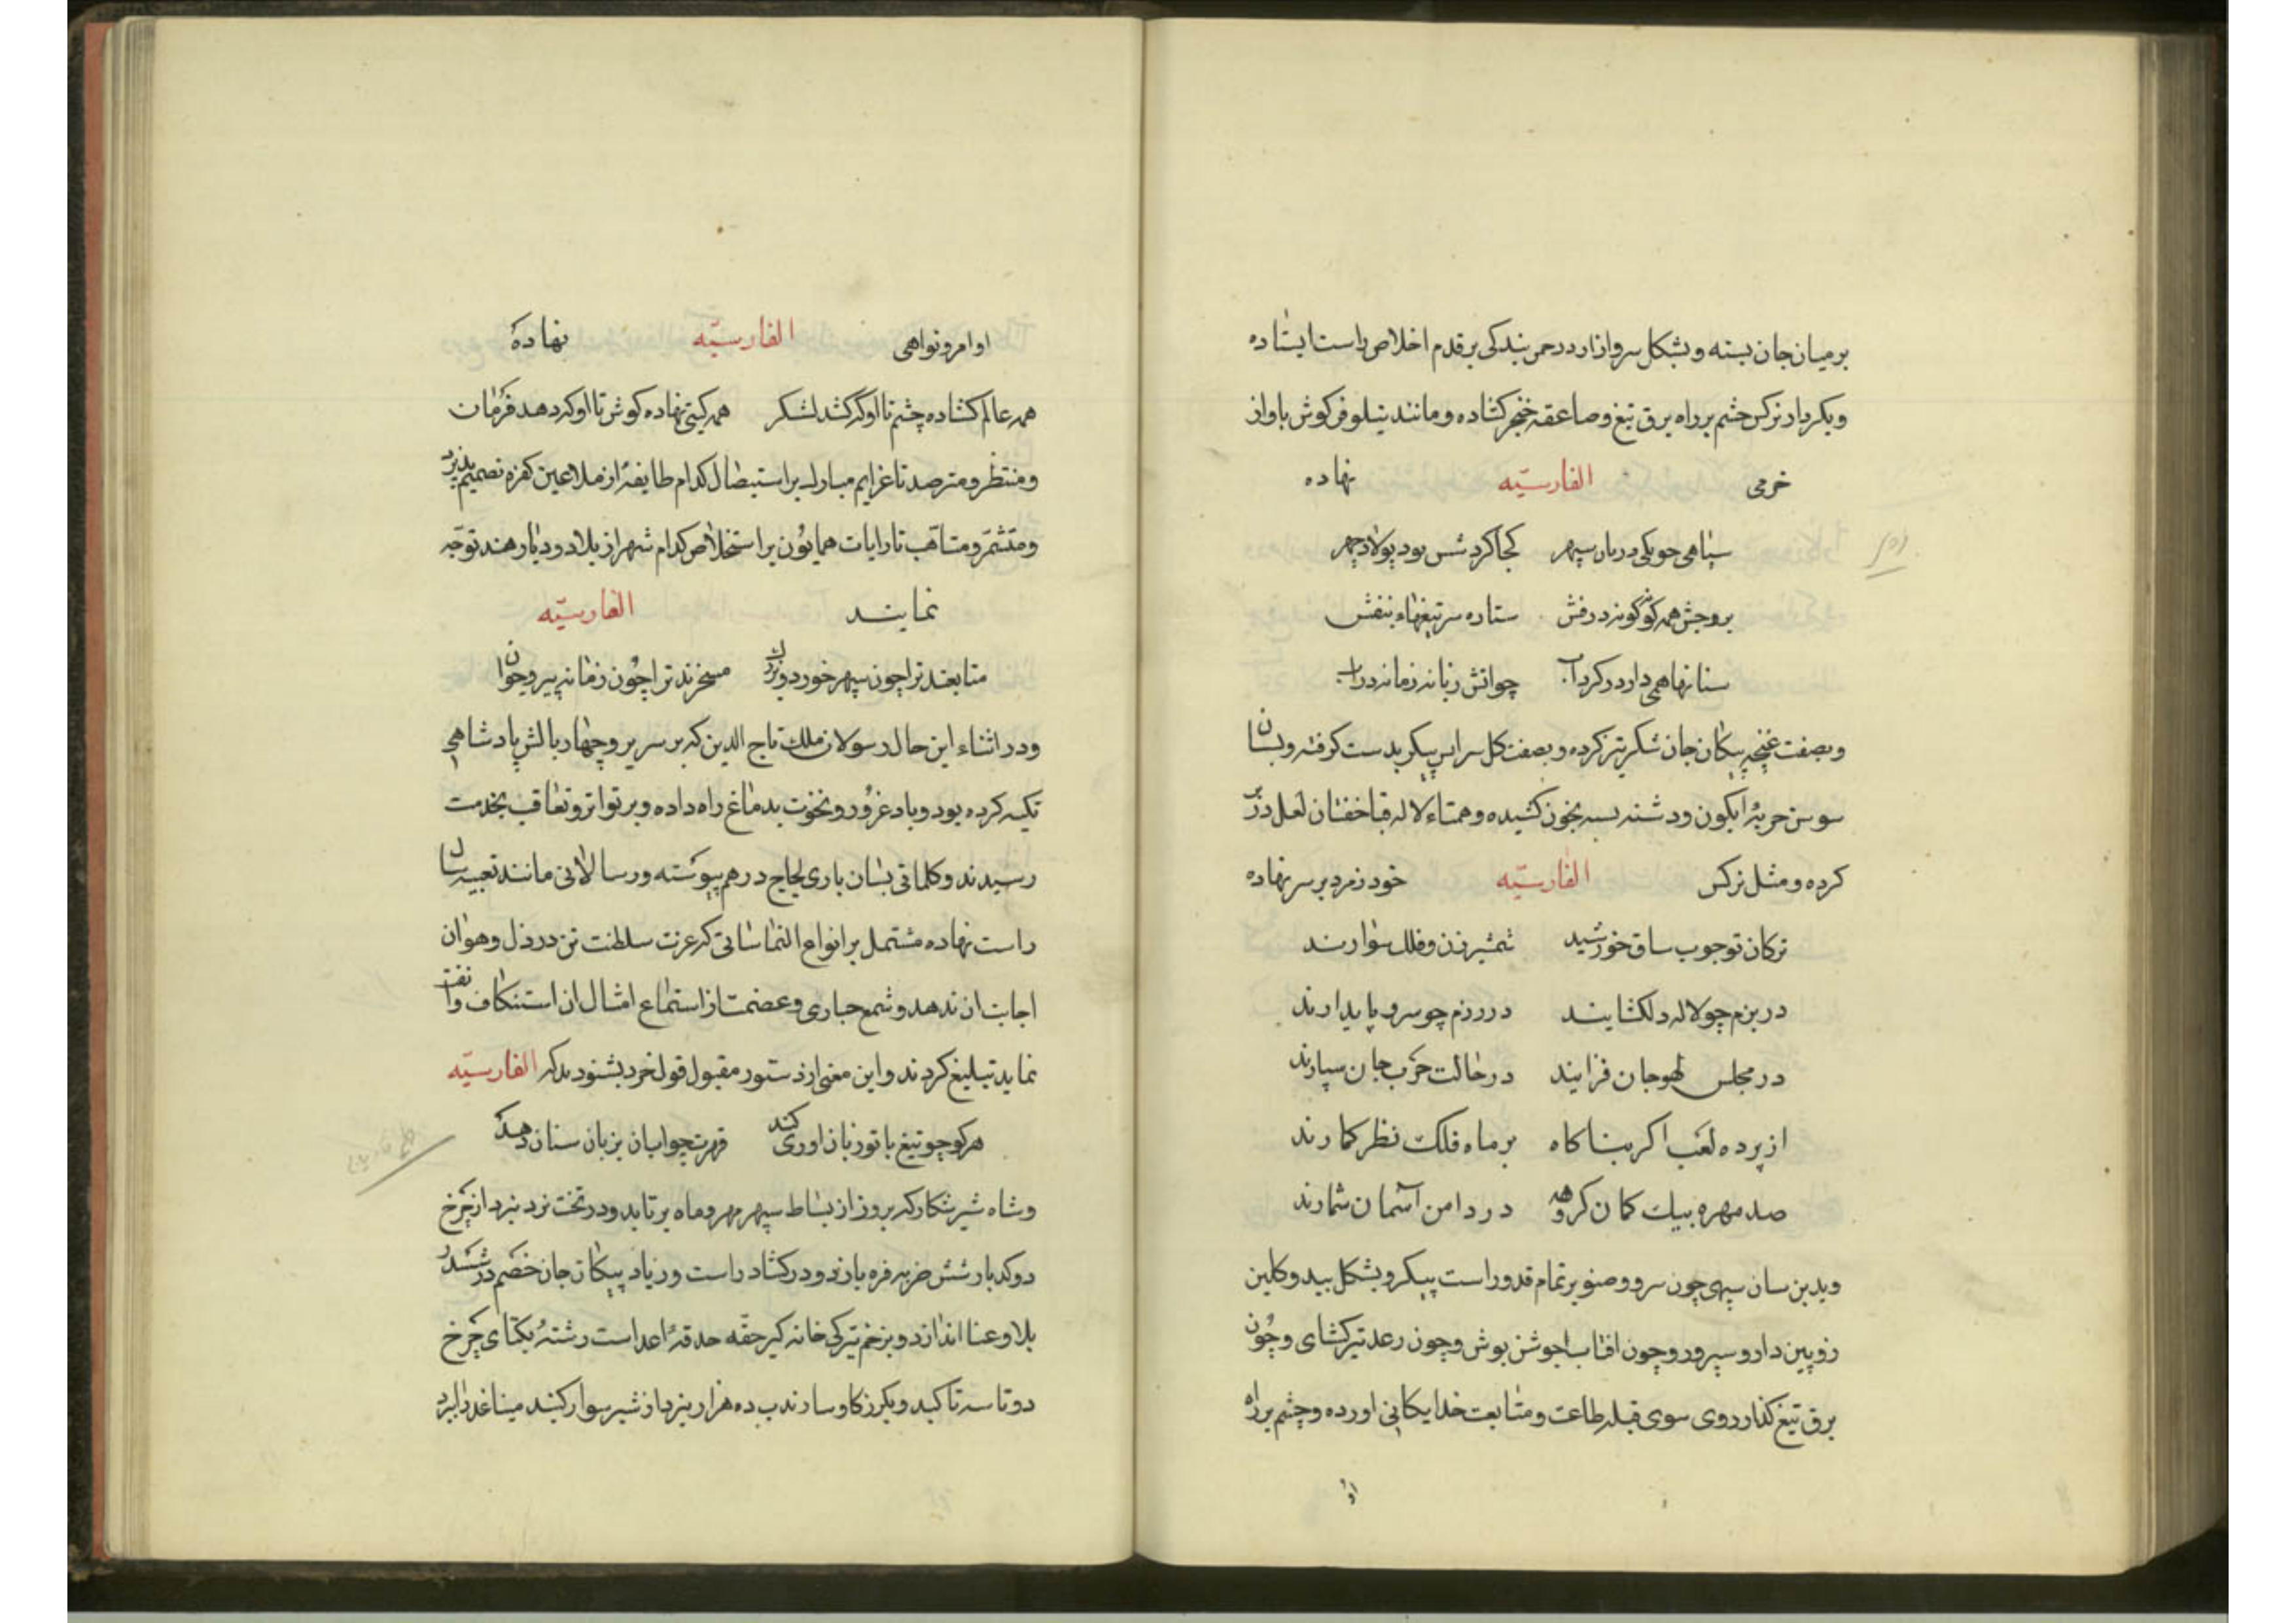 برمیان جان بسته وبشکل سروازاد درچمن بندکی برقدم اخلاص راست ایستاده
وبکردار نرکس چشم برراه برق تیغ وصاعقه خنجر کشاده ومانند نیلوفر کوش باواز
خرمی الفارسیّه نهاده
سپاهی جویکی دریان سپهر کجا کردشس بود پولاد چهر
بروجش همه کونه کونه درفش ستاره سر تیغهاء بنفش
سنانها همی دارد در کرد آب چواتش زبانه زمانه دراب
وبصفت غنچه پیکان جان شکر تیز کرده وبصفت کل سراسر پیکر بدست کرفته وبسان
سوسن حربهٔ ابکون ودشنه بسه بخون کشیده وهمتاء لاله قبا خفتان لعل درّ
کرده ومثل نرکس الفارسیّه خود زمرد برسر نهاده
ترکان تو جوب ساق خورشید شمشیرزن وفلک سوارند
دربزم چو لاله دلکشایند دررزم چو سرو پایدارند
درمجلس لهو جان فزایند درحالت حرب جان سپارند
ازپرده لعب اکر بناکاه برماه فلک نظر کمارند
صد مهره بیک کمان کروهه دردامن آسمان شمارند
وبدین سان سپهی چون سرو وصنوبر تمام قد وراست پیکر وبشکل بید وکلبن
زوپین دار وسپرور وچون افتاب جوشن پوش وچون رعد تیرکشای وچون
برق تیغ کذار روی سوی قبله طاعت ومتابعت خدایکانی اورده وچشم برراه
اوا
اوامر ونواهی الفارسیّه نهادهٔ
همه عالم کشاده چشم تا او کر کشد لشکر همه کیتی نهاده کوش تا او کردهد فرمان
ومنتظر ومترصد تا عزایم مبارک براستیصال کدام طایفهٔ از ملاعین کفره تصمیم پذیرد
ومتشمّر ومتاهّب تا رایات همایون براستخلاص کدام شهر از بلاد ودیار هند توجّه
نمایند الفارسیّه
متابعند ترا چون سپهر خورد وبزرک مسخرند ترا چون زمانه پیر وجوان
ودر اثناء این حال رسولان ملک تاج الدین که بر سریر وچهار بالش پادشاهی
تکیه کرده بود وباد غرور ونخوت بدماغ راه داده وبر تواتر وتعاقب بخدمت
رسیدند وکلماتی بسان باری لجاج درهم پیوسته ورسالاتی مانند تعبیه
راست نهاده مشتمل بر انواع التماساتی که عزت سلطنت تن در ذل وهوان
اجابت ان ندهد وسمع جباری وعصمت از استماع امثال ان استنکاف وانفت
نماید تبلیغ کردند واین معنی از دستور مقبول قول خرد بشنود ند که الفارسیّه
هرکو چو تیغ با تو زبان اوری کند قهرت جواب ان بزبان سنان دهد
وشاه شیرشکار که بروز از بساط سپهر مهره ماه برتابد ودر تخت نرد نبرد از چرخ
دوکد بار شش ضربه فره بازد ودر کشاد راست وزیاد پیکان جان خصم در ششدر
بلا وعنا اندازد وبزخم تیر کی خانه کیر حقه حدقهٔ اعداست رشتهٔ یکتای چرخ
دوتا سه تا کند وبکرز کاوسار ندب ده هزار بنرد از شیر سوار کیند